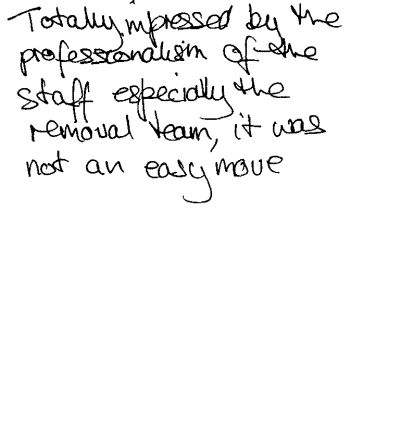 Totally impressed by the
professionalism of the
staff especially the
removal team, it was
not an easy move